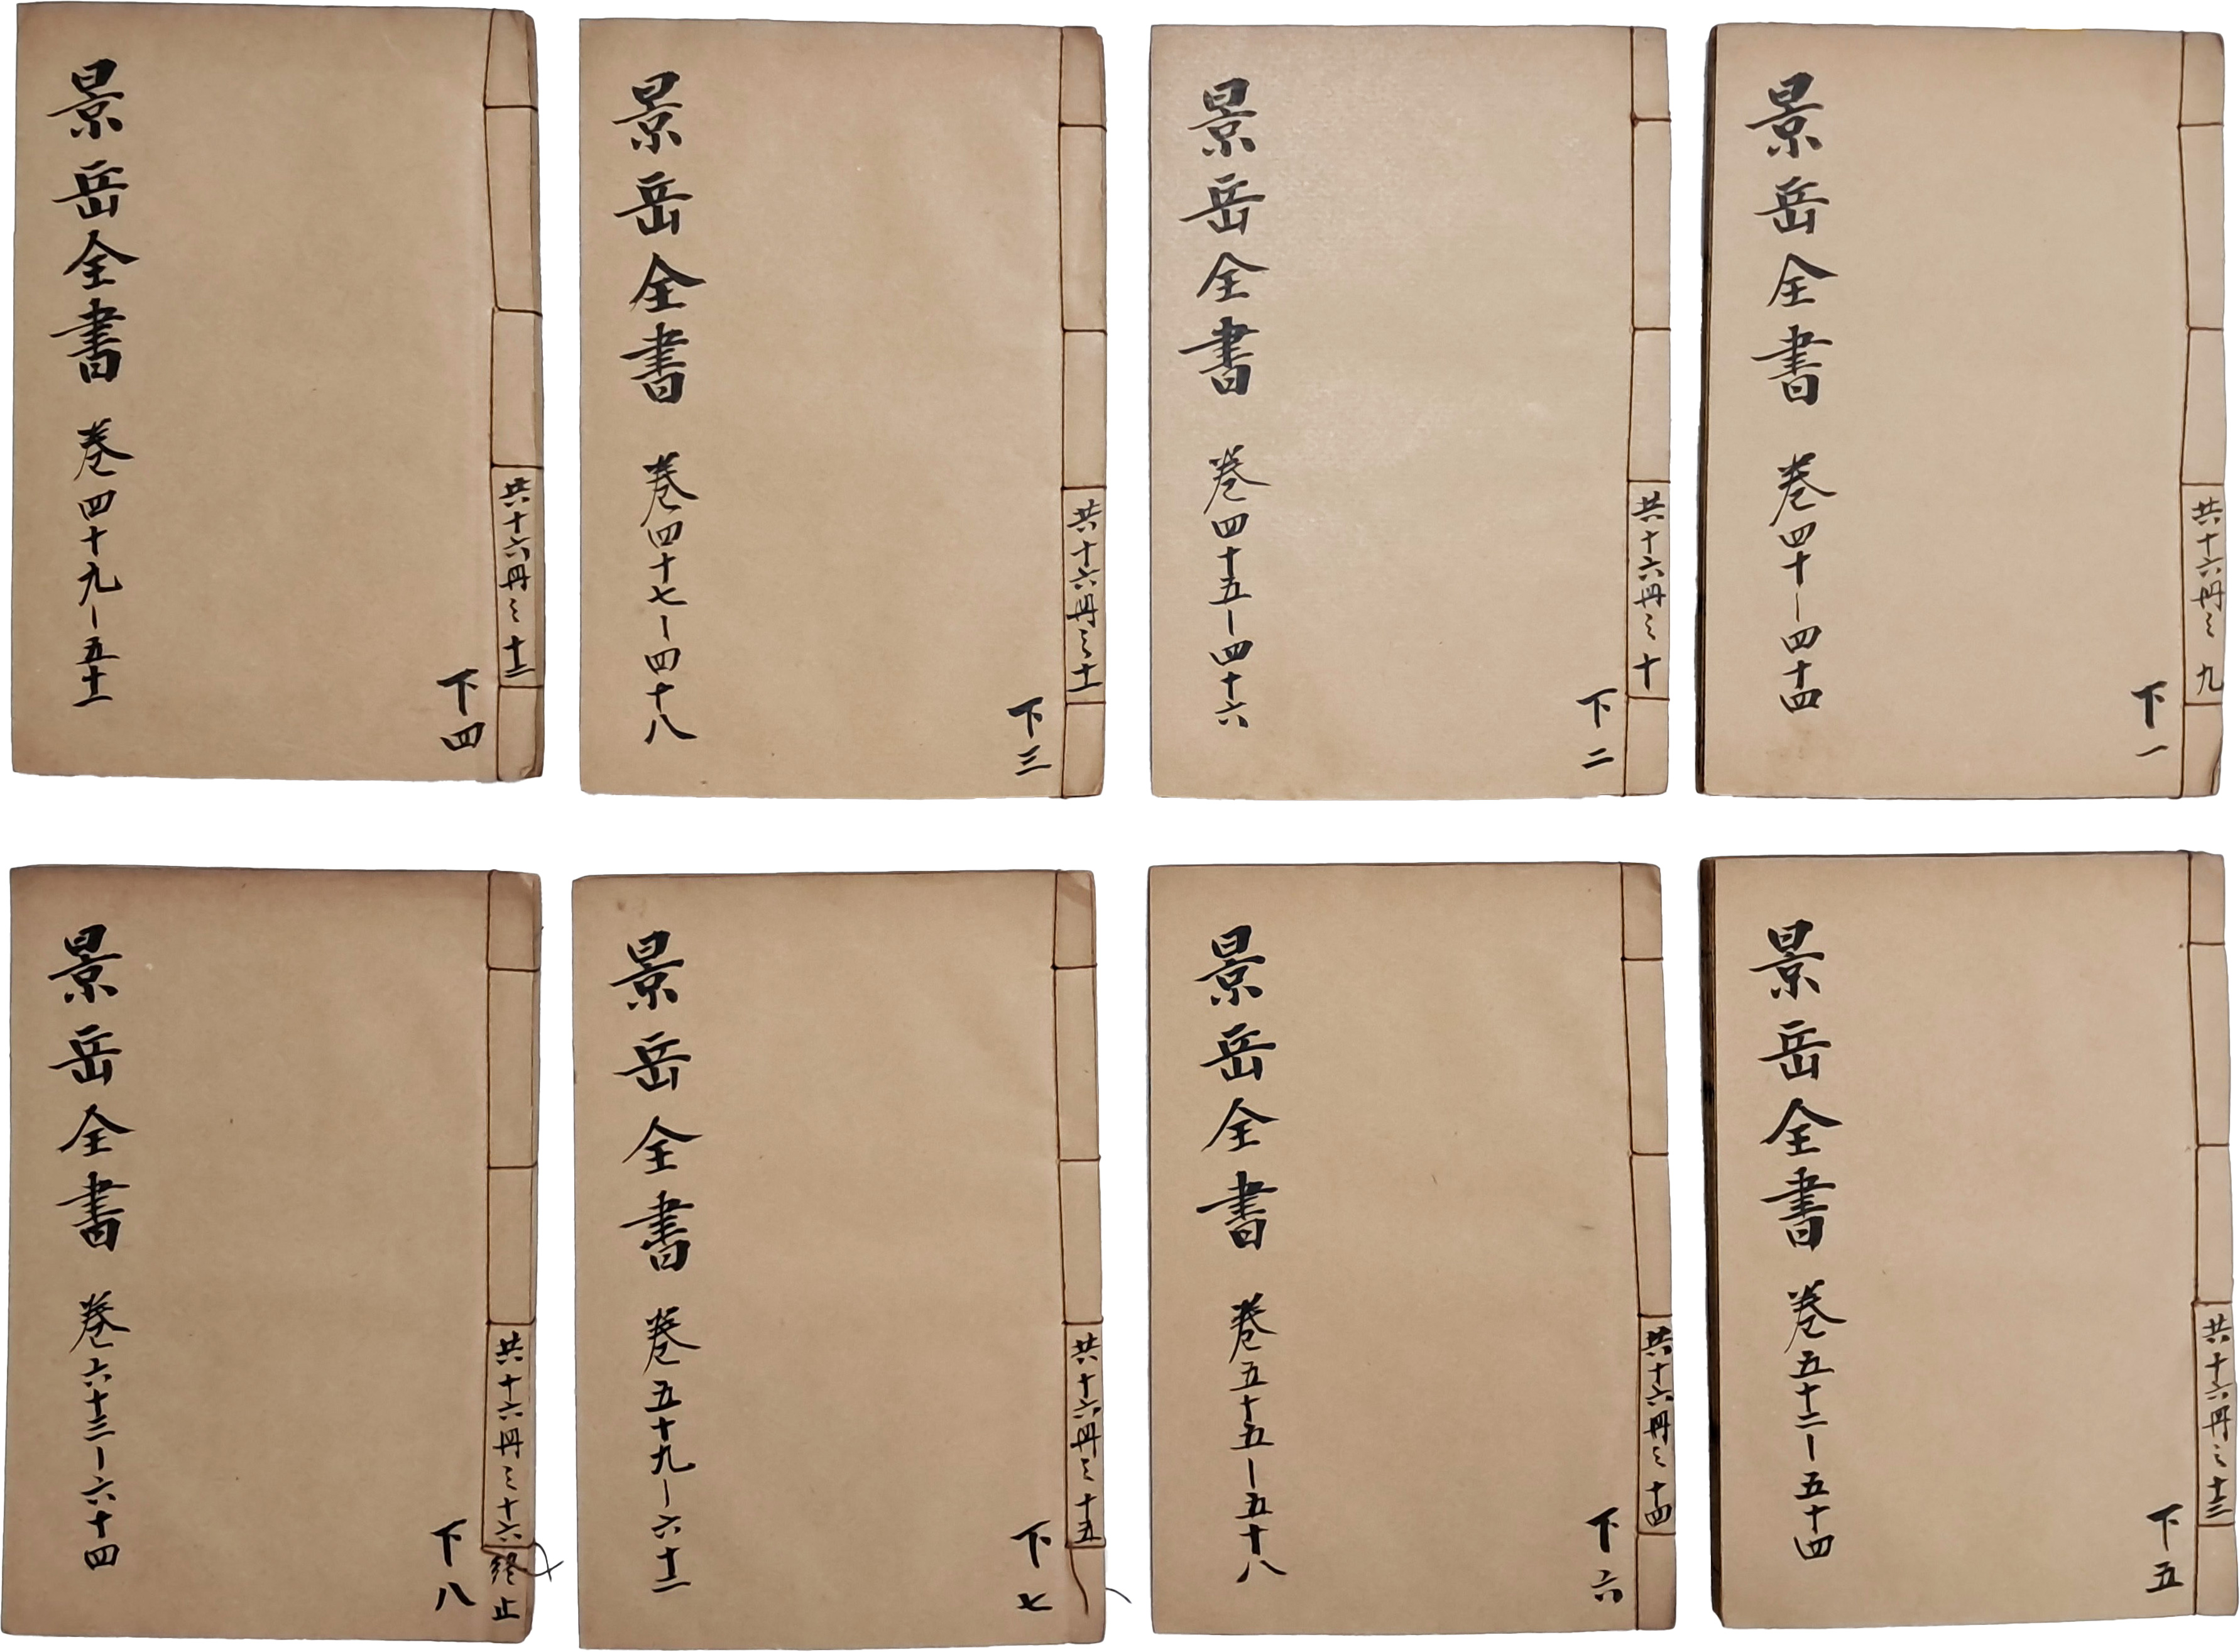 共十六冊之九
下一
景岳全書 卷四十-四十四
共十六冊之十
下二
景岳全書 卷四十五-四十六
共十六冊之十一
下三
景岳全書 卷四十七-四十八
共十六冊之十二
下四
景岳全書 卷四十九-五十一
共十六冊之十三
下五
景岳全書 卷五十二-五十四
共十六冊之十四
下六
景岳全書 卷五十五-五十八
共十六冊之十五
下七
景岳全書 卷五十九-六十二
共十六冊之十六終止
下八
景岳全書 卷六十三-六十四